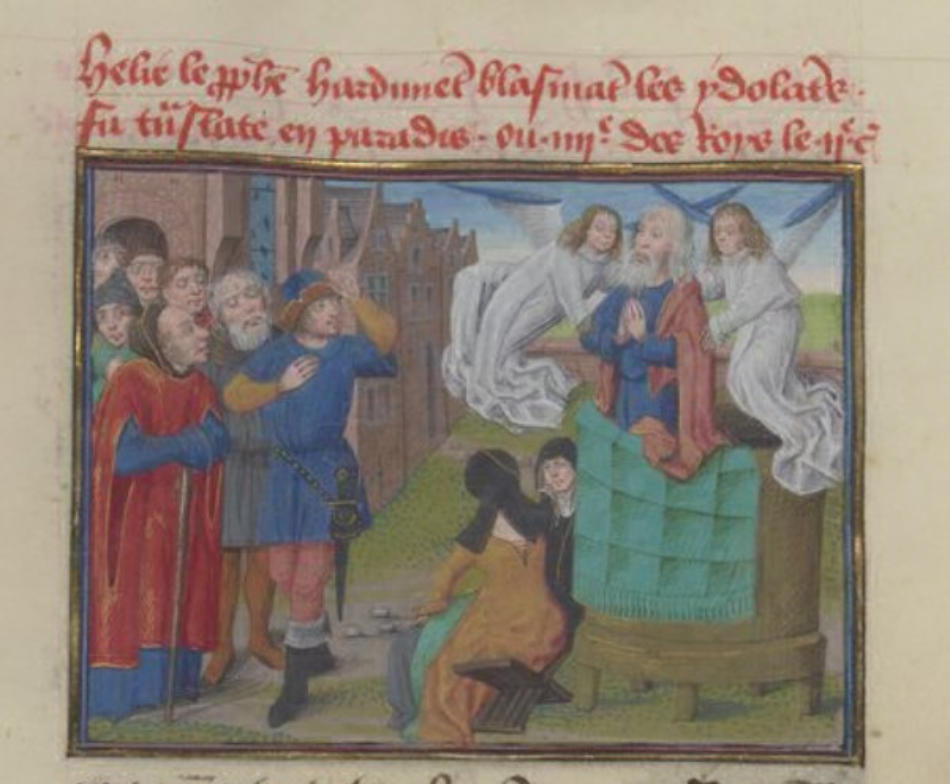 Helie le pphẽ hardimẽt blasmãt les ydolatẽs.
Fu trãslate en paradis. ou .iiij.e des Roys le .ij.e c̃